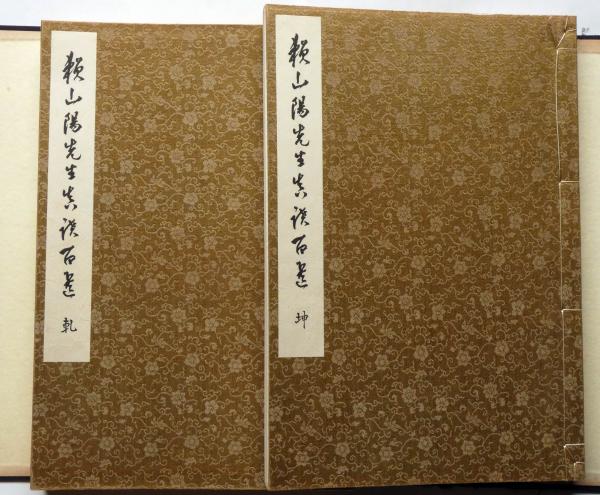 頼山陽先生真蹟百選 坤
頼山陽先生真蹟百選 乾